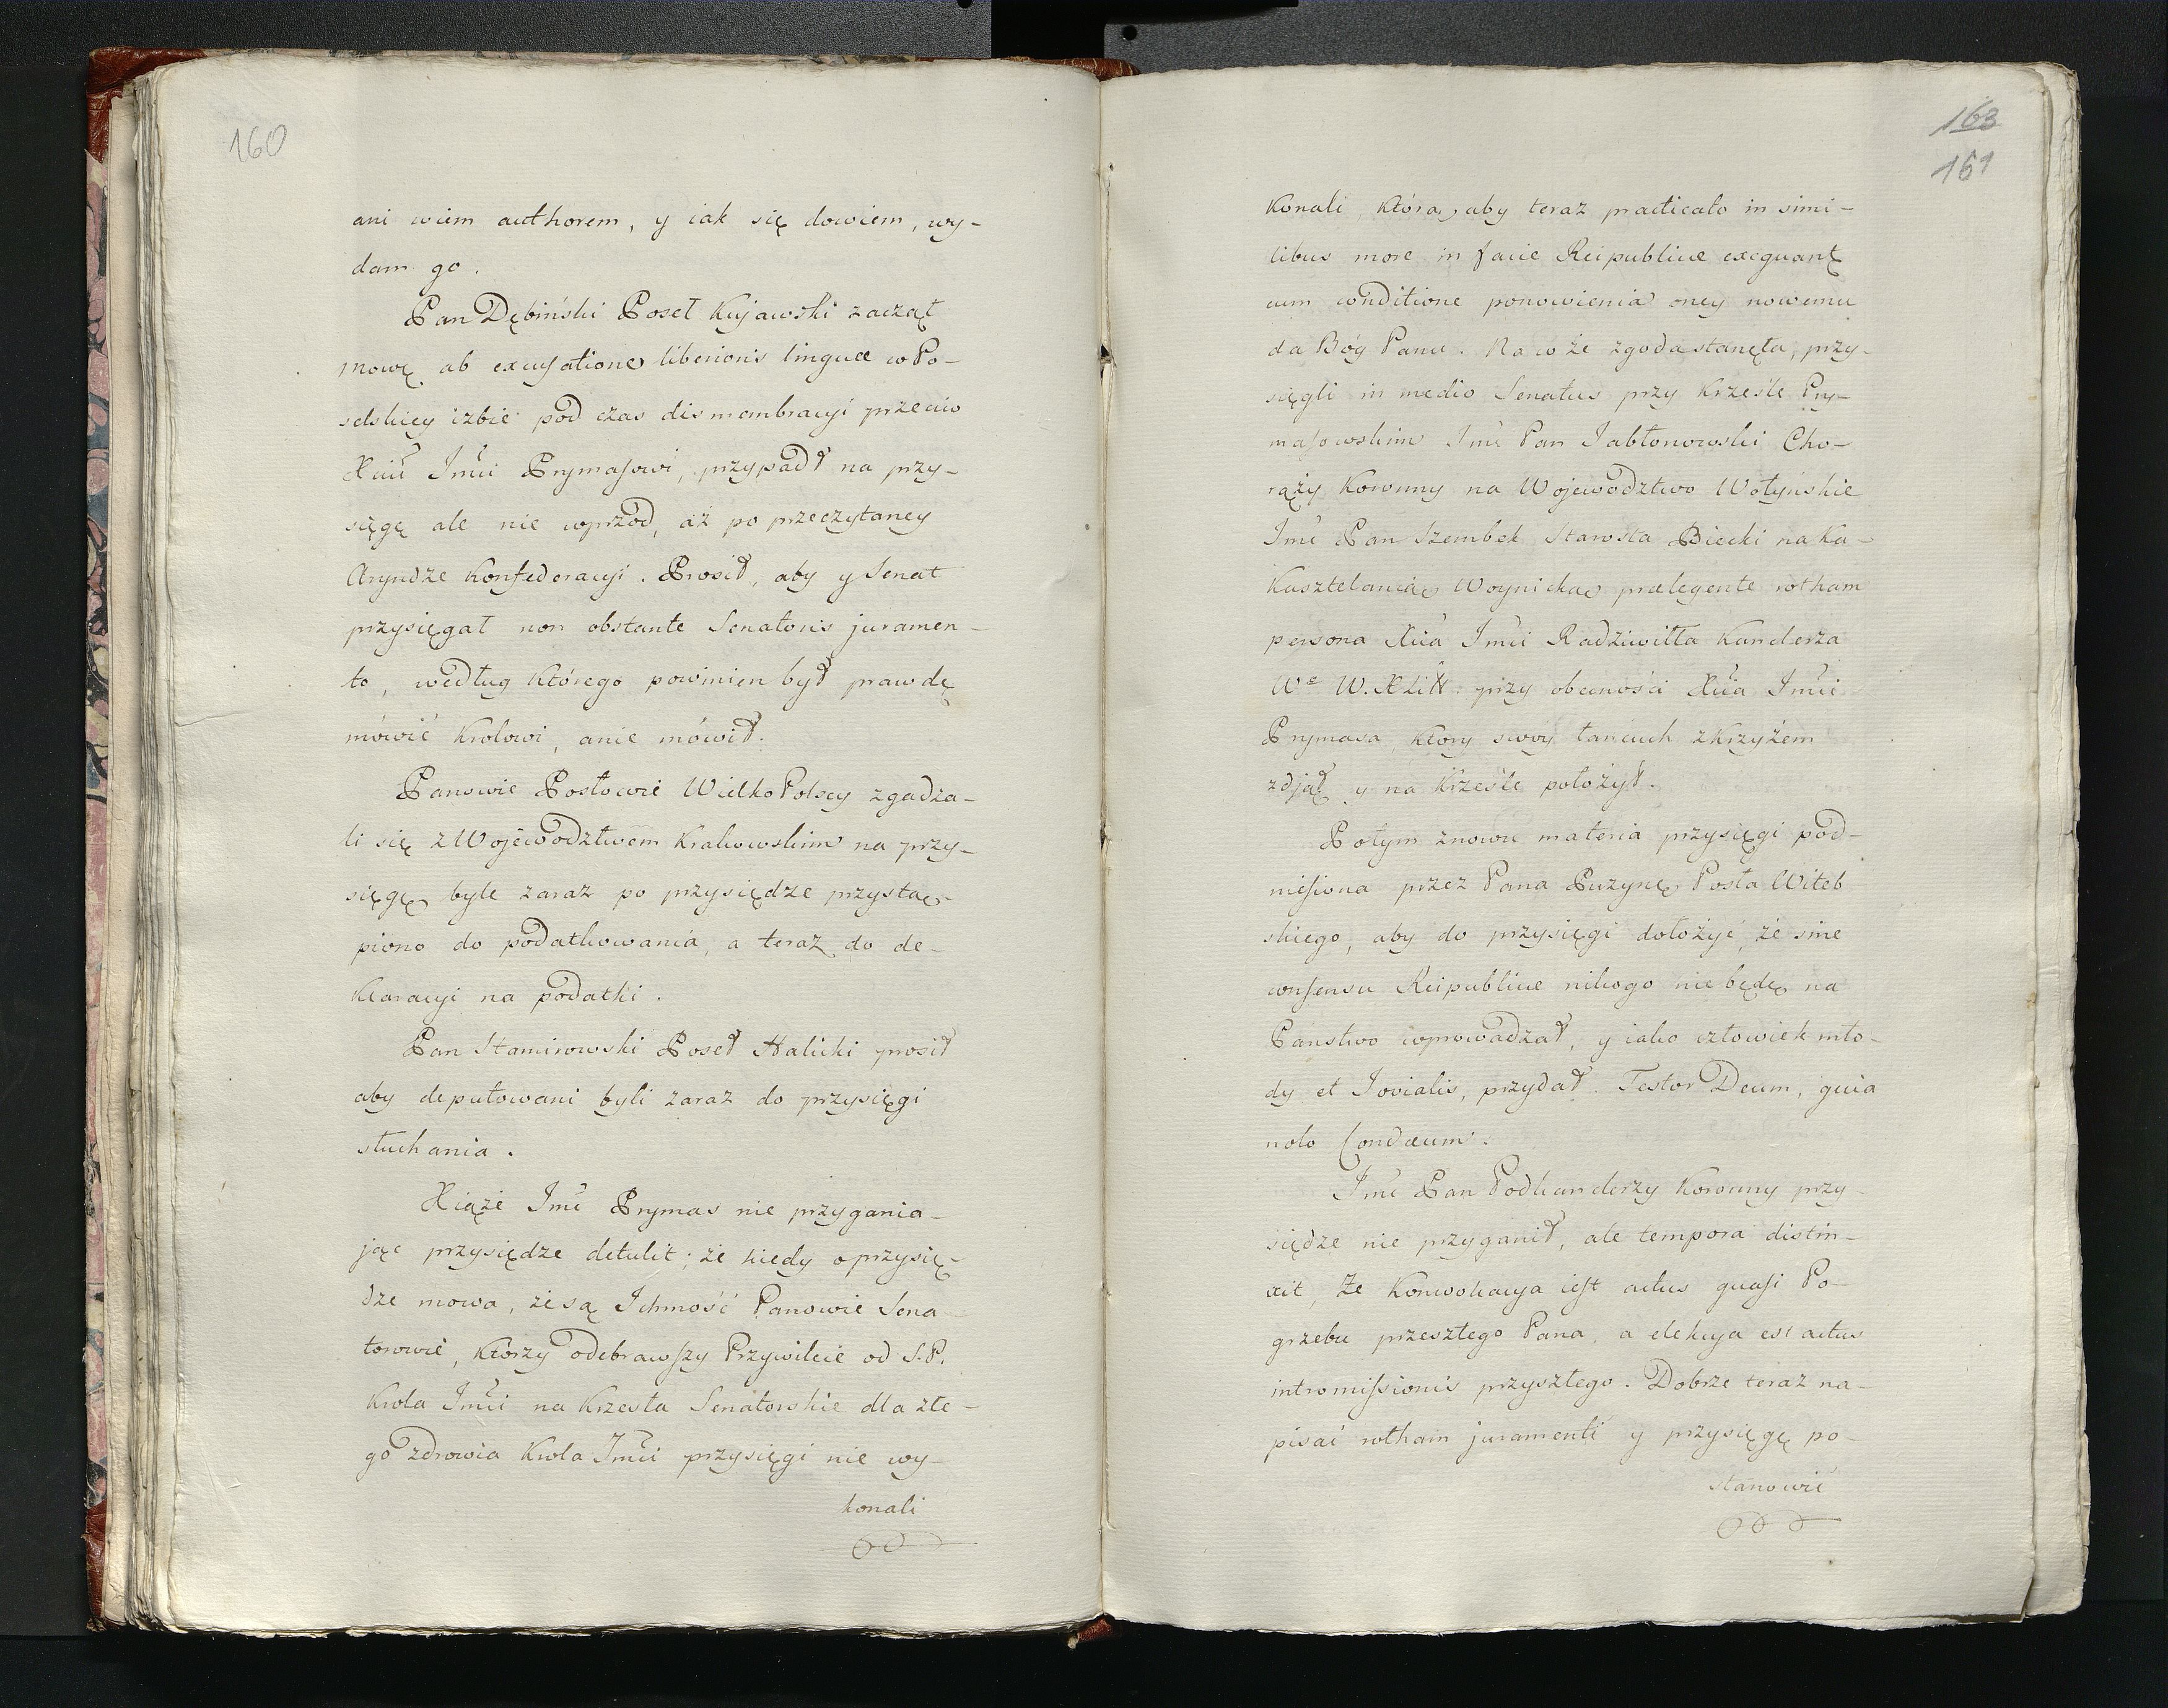 160
ani wiem authorem, y iak się dowiem, wy-
dam go.
Pan Dębiński Poseł Kujawski zaczął
mowę ab excusatione liberioris linguæ w Po-
selskiey izbie pod czas dismembracyi przeciw
Xciu Jmci Prymasowi, przypadł na przy-
sięgę ale nie wprzod, aż po przeczytaney
Aryndze Konfederacyi. Prosił, aby y Senat
przysięgał non obstante Senatoris juramen-
to, według którego powinien był prawdę
mówić Krolowi, a nie mówił.
Panowie Posłowie WielkoPolscy zgadza-
li się z Województwem Krakowskim na przy-
sięgę byle zaraz po przysiędze przystą-
piono do podatkowania, a teraz do de-
klaracyi na podatki.
Pan Stamirowski Poseł Halicki prosił
aby deputowani byli zaraz do przysięgi
słuchania.
Xiąże Jmć Prymas nie przygania-
jąc przysiędze detulit; że kiedy o przysię-
dze mowa, że są Ichmość Panowie Sena
torowie, którzy odebrawszy Przywileie od S.P.
Krola Jmci na Krzesła Senatorskie dla złe-
go zdrowia Krola Jmci przysięgi nie wy-
konali
163
161
Konali, którą, aby teraz practicato in simi-
libus more in facie Reipublicæ exequant
cum conditione ponowienia oney nowemu
da Bóg Panu. Na co że zgoda stanęła, przy-
sięgli in medio Senatus przy Krześle Pry-
masowskim Jmć Pan Jabłonowski Cho-
rąży Koronny na Województwo Wołyńskie
Jmć Pan Szembek Starosta Biecki na Ka-
Kasztelanią Woynicką prælegente rotham
persona Xcia Jmci Radziwiłła Kanclerza
Wo W. X Litt. przy obecności Xcia Jmci
Prymasa, który swóy łańcuch z krzyżem
zdjął y na Krześle położył.
Potym znowu materia przysięgi pod-
niesiona przez Pana Puzynę Posła Witeb
skiego, aby do przysięgi dołożyć, że sine
consensu Reipublicæ nikogo nie będę na
Panstwo wprowadzał, y iako człowiek mło-
dy et Jovialis, przydał. Testor Deum, quia
nolo Condæum.
Jmć Pan Podkanclerzy Koronny przy-
siędze nie przyganił, ale tempora distin-
xit, Że Konwokacya iest actus quasi Po-
grzebu przeszłego Pana, a elekcya est actus
intromissionis przyszłego. Dobrze teraz na-
pisać rotham juramenti y przysięgę po-
stanowić